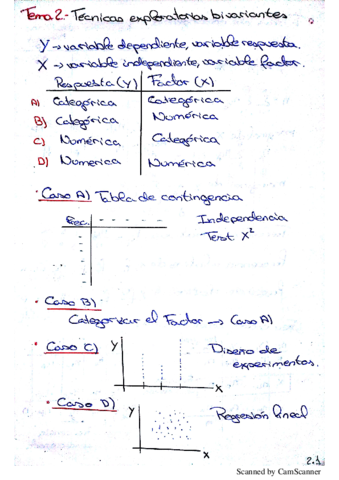 Tema 2.- Técnicas exploratorias bivariantes
Y → variable dependiente, variable respuesta.
X → variable independiente, variable factor.
Respuesta (Y) | Factor (X)
A) Categórica | Categórica
B) Categórica | Numérica
C) Numérica | Categórica
D) Numerica | Numérica
· Caso A) Tabla de contingencia
Frec. Independencia
Test X²
· Caso B)
Categorizar el Factor → Caso A)
· Caso C) Y X Diseño de
experimentos.
· Caso D) Y X Regresión lineal
2.1
Scanned by CamScanner